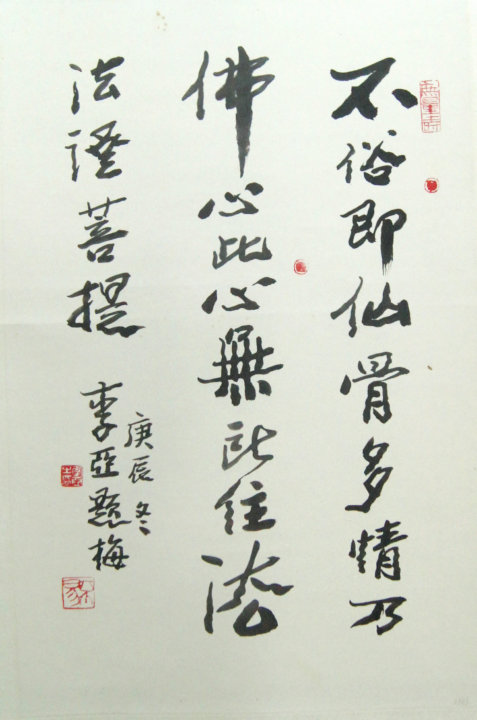 無量壽
不俗即仙骨多情乃
佛心此心無所住法
法證菩提
庚辰冬
李亞梅